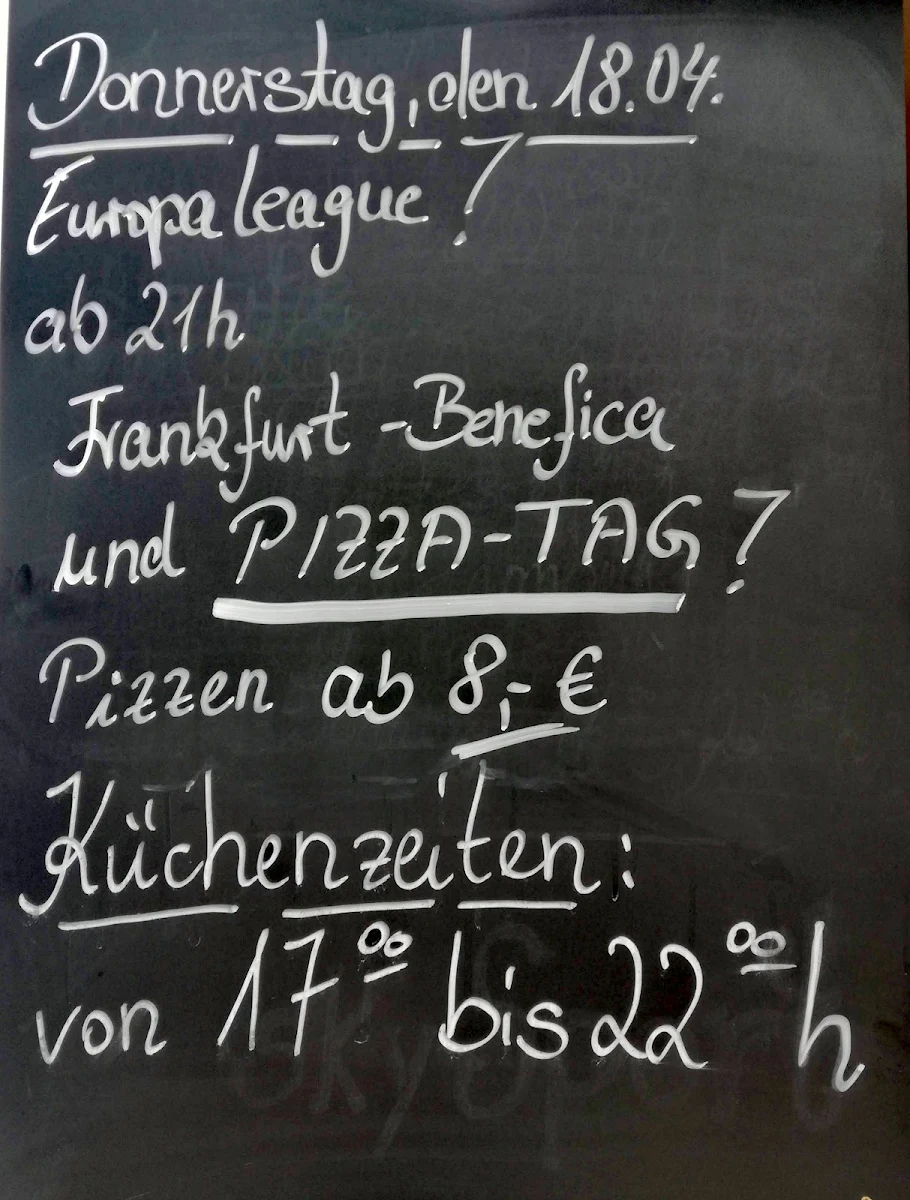 Donnerstag, den 18.04.
Europaleague !
ab 21h
Frankfurt - Benefica
und PIZZA-TAG !
Pizzen ab 8,- €
Küchenzeiten:
von 17⁰⁰ bis 22⁰⁰ h
Sky Sport